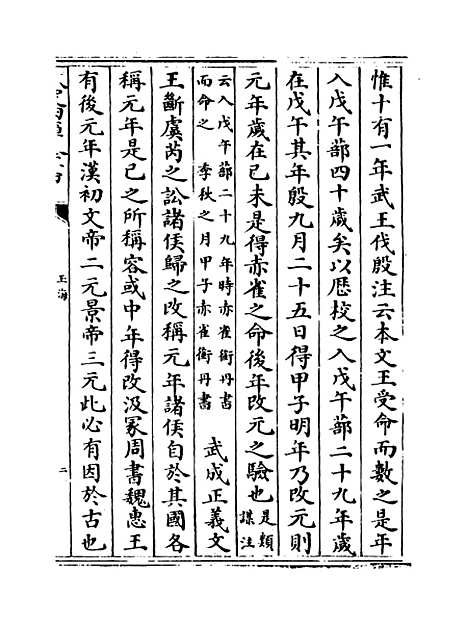 惟十有一年武王伐殷注云本文王受命而數之是年
入戊午蔀四十歲矣以歷校之入戊午蔀二十九年歲
在戊午其年殷九月二十五日得甲子明年乃改元則
元年歲在己未是得赤雀之命後年改元之驗也是類
謀注
云入戊午蔀二十九年時赤雀銜丹書
而命之 季秋之月甲子赤雀銜丹書
武成正義文
王斷虞芮之訟諸侯歸之改稱元年諸侯自於其國各
稱元年是己之所稱容或中年得改汲冢周書魏惠王
有後元年漢初文帝二元景帝三元此必有因於古也
玉海
二